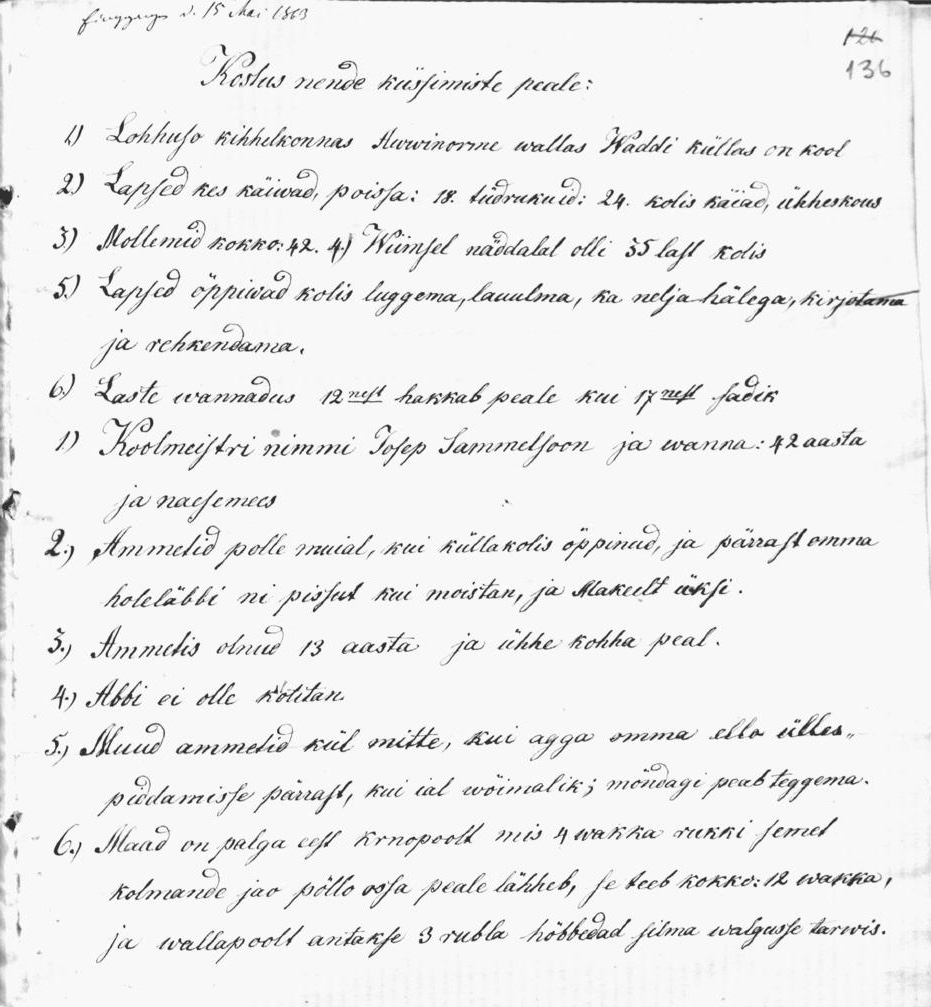 d. 15 Mai 1863
126
136
Kostus nende küssimiste peale:
1) Lohhuso kihhelkonnas Awwinorme wallas Waddi küllas on kool
2) Lapsed kes käiwad, poissa: 18. tüdrukuid: 24. kolis käiad, ühheskous
3) Mollemid kokko: 42. 4.) Wiimsel näddalal olli 35 last kolis
5.) Lapsed öppiwad kolis luggema, lauulma, ka nelja hälega, kirjotama
ja rehkendama.
6.) Laste wannadus 12 nest hakkab peale kui 17 nest sadik
1) Koolmeistri nimmi Josep Sammelsoon ja wanna: 42 aasta
ja naesemees
2.) Ammetid polle muial, kui küllakolis öppinud, ja pärrast omma
holeläbbi ni pissut kui moistan, ja Makeelt üksi.
3.) Ammetis olnud 13 aasta ja ühhe kohha peal.
4.) Abbi ei olle
5.) Muud ammetid kül mitte, kui agga omma ello ülles„
piddamisse pärrast, kui ial wöimalik; möndagi peab teggema.
6.) Maad on palga eest krnopoolt mis 4 wakka rukki semet
kolmande jao pöllo ossa peale lähheb, se teeb kokko: 12 wakka,
ja wallapoolt antakse 3 rubla höbbedad silma walgusse tarwis.